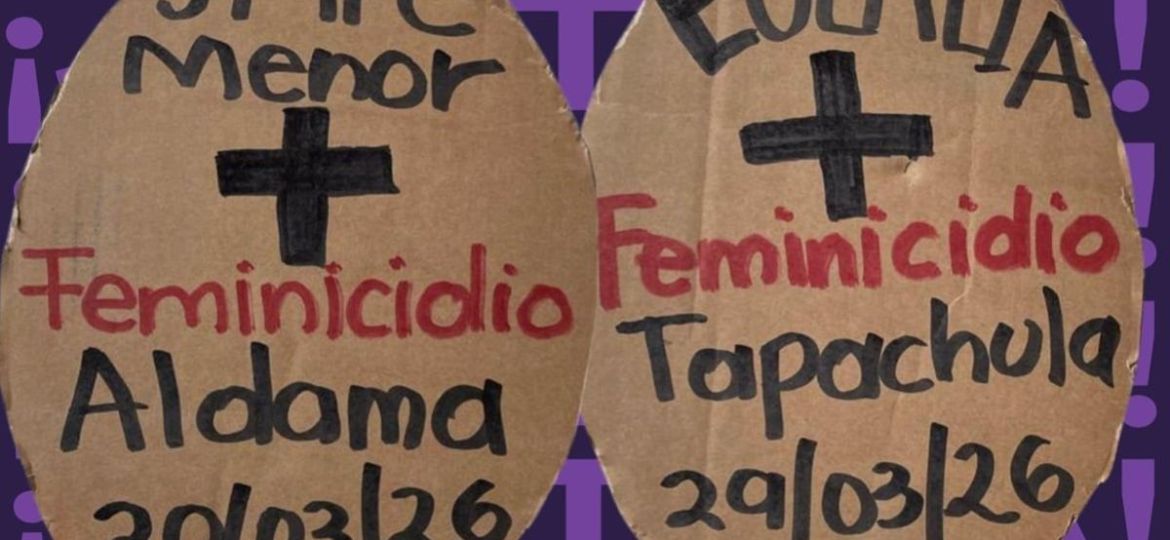 Menor
Feminicidio
Aldama
20/03/26
Feminicidio
Tapachula
29/03/26